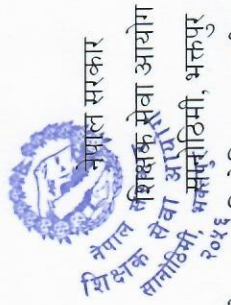 नेपाल सरकार
शिक्षक सेवा आयोग
सानोठिमी, भक्तपुर
नेपाल
शिक्षक सेवा आयोग
सानोठिमी, भक्तपुर
२०५६